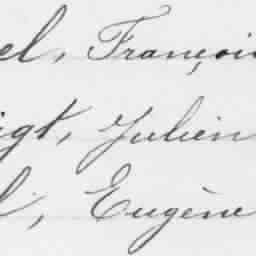 el, Françoi
igt, Julien
l, Eugène